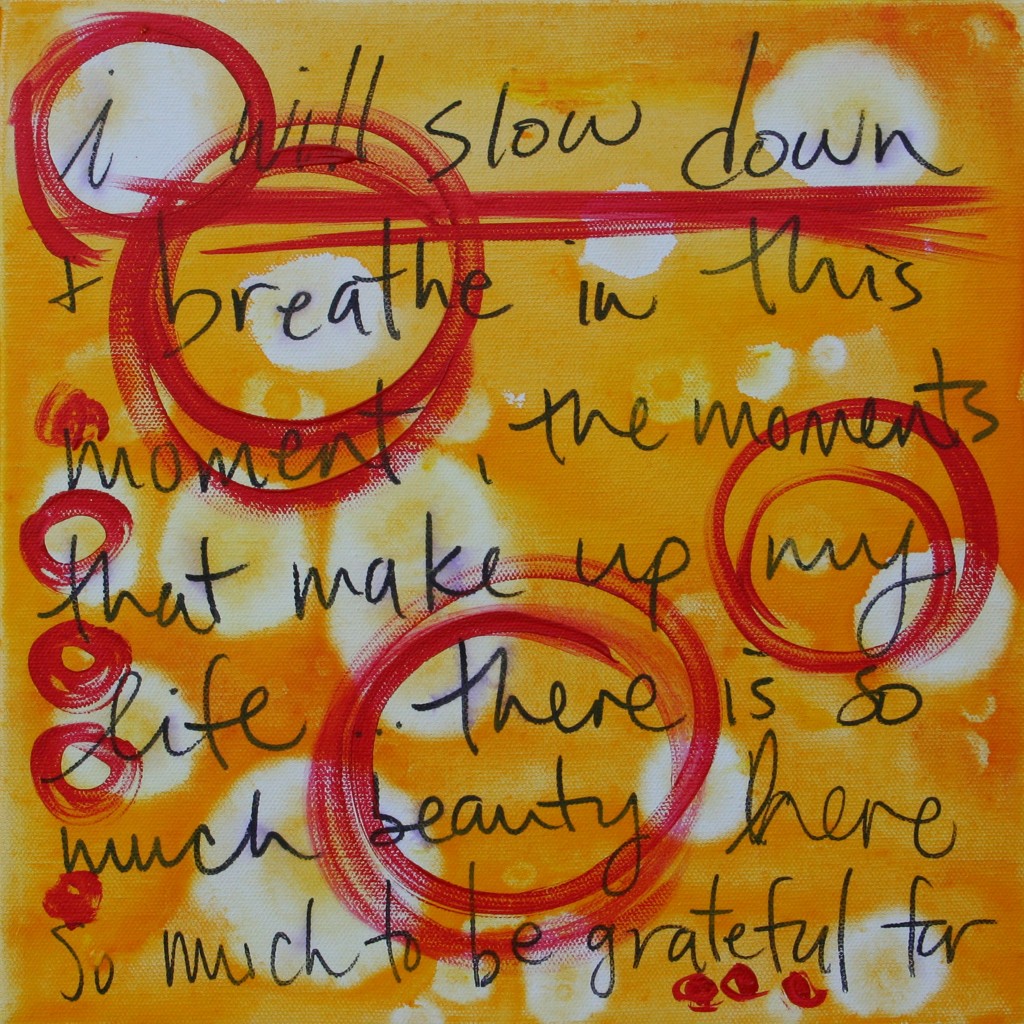 i will slow down
+ breathe in this
moment, the moments
that make up my
life... there is so
much beauty here
so much to be grateful for